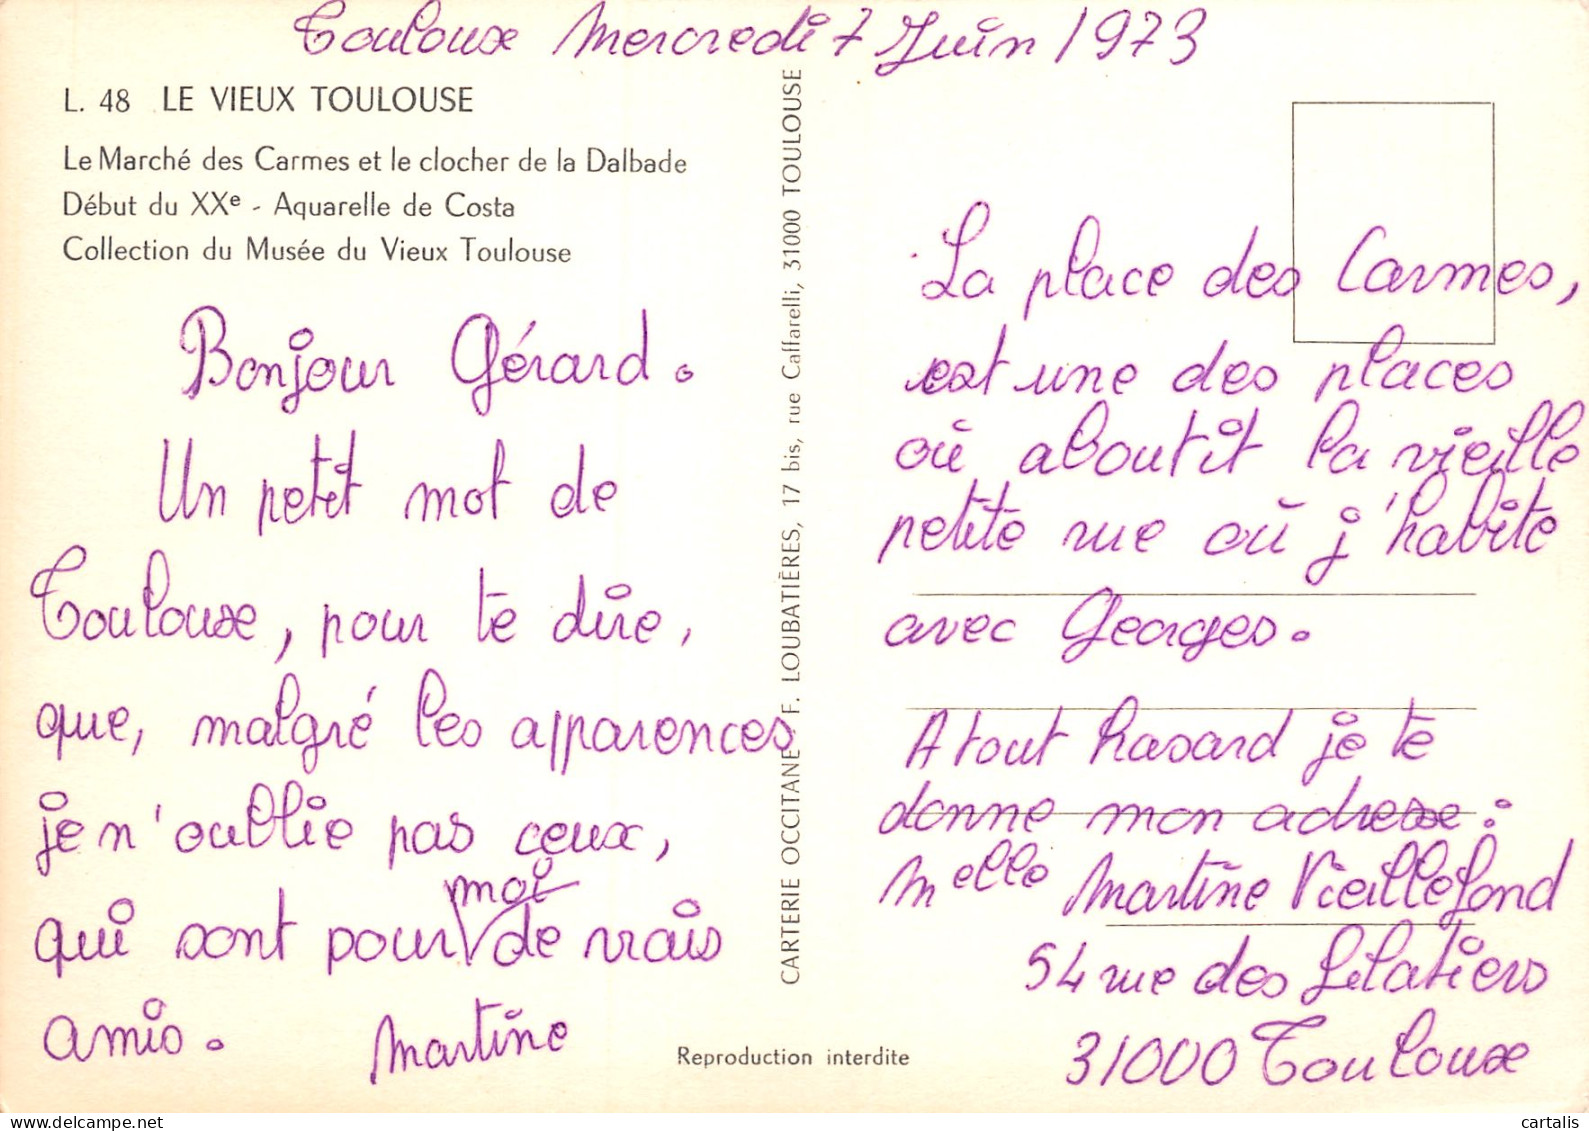 Toulouse Mercredi 7 Juin 1973
L. 48 LE VIEUX TOULOUSE
Le Marché des Carmes et le clocher de la Dalbade
Début du XXe - Aquarelle de Costa
Collection du Musée du Vieux Toulouse
Bonjour Gérard.
Un petit mot de
Toulouse, pour te dire,
que, malgré les apparences
je n'oublie pas ceux,
qui sont pour moi de vrais
amis. Martine
CARTERIE OCCITANE F. LOUBATIÈRES, 17 bis, rue Caffarelli, 31000 TOULOUSE
Reproduction interdite
La place des Carmes,
est une des places
où aboutit la vieille
petite rue où j'habite
avec Georges.
A tout hasard je te
donne mon adresse :
Melle Martine Vieillefond
54 rue des Filatiers
31000 Toulouse
cartalis
delcampe.net